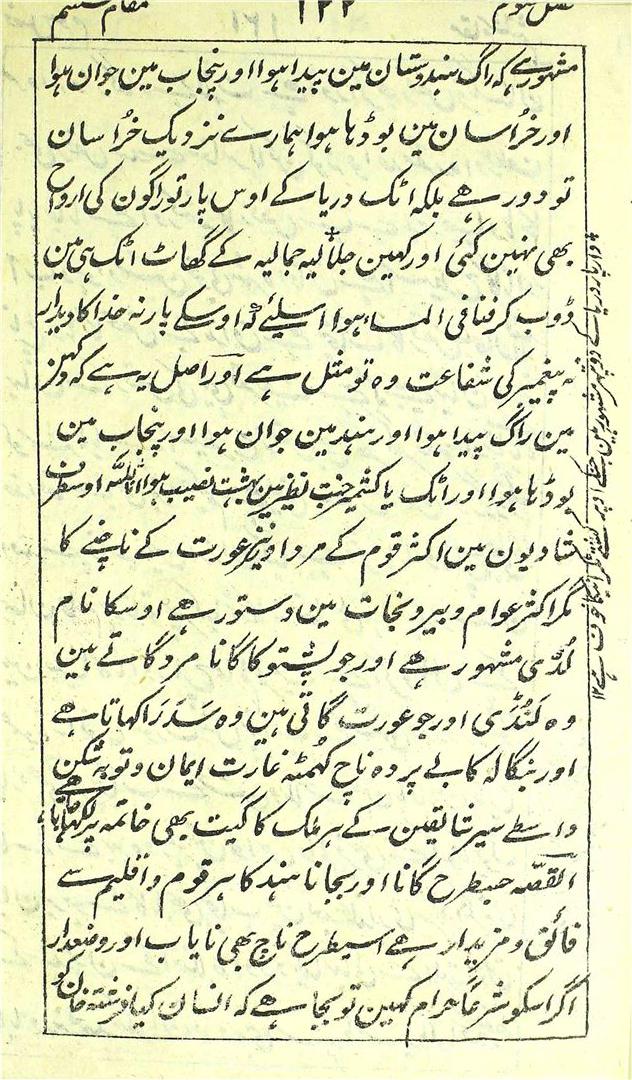 فصل سوم ۱۲۲ مقام ششم
مشہور ہے کہ راگ ہندوستان مین پیدا ہوا اور پنجاب مین جوان ہوا
اور خراسان مین بوڈہا ہوا ہمارے نزدیک خراسان
تو دور ہے بلکہ اٹک دریا کے اوس پار تو راگون کی ارواح
بھی نہین گئی اور کہین جلالیہ جمالیہ کے گھاٹ اٹک ہی مین
ڈوب کر فنا فی الماء ہوا اسلیئے کہ اوسکے پار نہ خدا کا دیدار
نہ پیغمبر کی شفاعت وہ تو مثل ہے اور اصل یہ ہے کہ دکہن
مین راگ پیدا ہوا اور ہند مین جوان ہوا اور پنجاب مین
بوڈہا ہوا اور اٹک یا کشمیر جنت نظیر مین بہشت نصیب ہوا انا للہ اوسطرف
شادیون مین اکثر قوم کے مرد اور نیز عورت کے ناچنے کا
مگر اکثر عوام و بیرونجات مین دستور ہے اوسکا نام
لُڈّی مشہور ہے اور جو پشتو کا گانا مرد گاتے ہین
وہ لَنُڈَی اور جو عورت گاتی ہین وہ سَدَرَا کہاتا ہے
اور بنگالہ کا بے پردہ ناچ کُہمٹہ غارت ایمان و توبہ شکن ہے
واسطے سیر شائقین کے ہر ملک کا گیت بھی خاتمہ پر لکھا جاتا
القصّہ جسطرح گانا اور بجانا ہند کا ہر قوم و اقلیم سے
فائق و مزیدار ہے اسیطرح ناچ بھی نایاب اور وضعدار
اگر اسکو شرعاً حرام کہین تو بجا ہے کہ انسان کیا فرشتہ خان کو